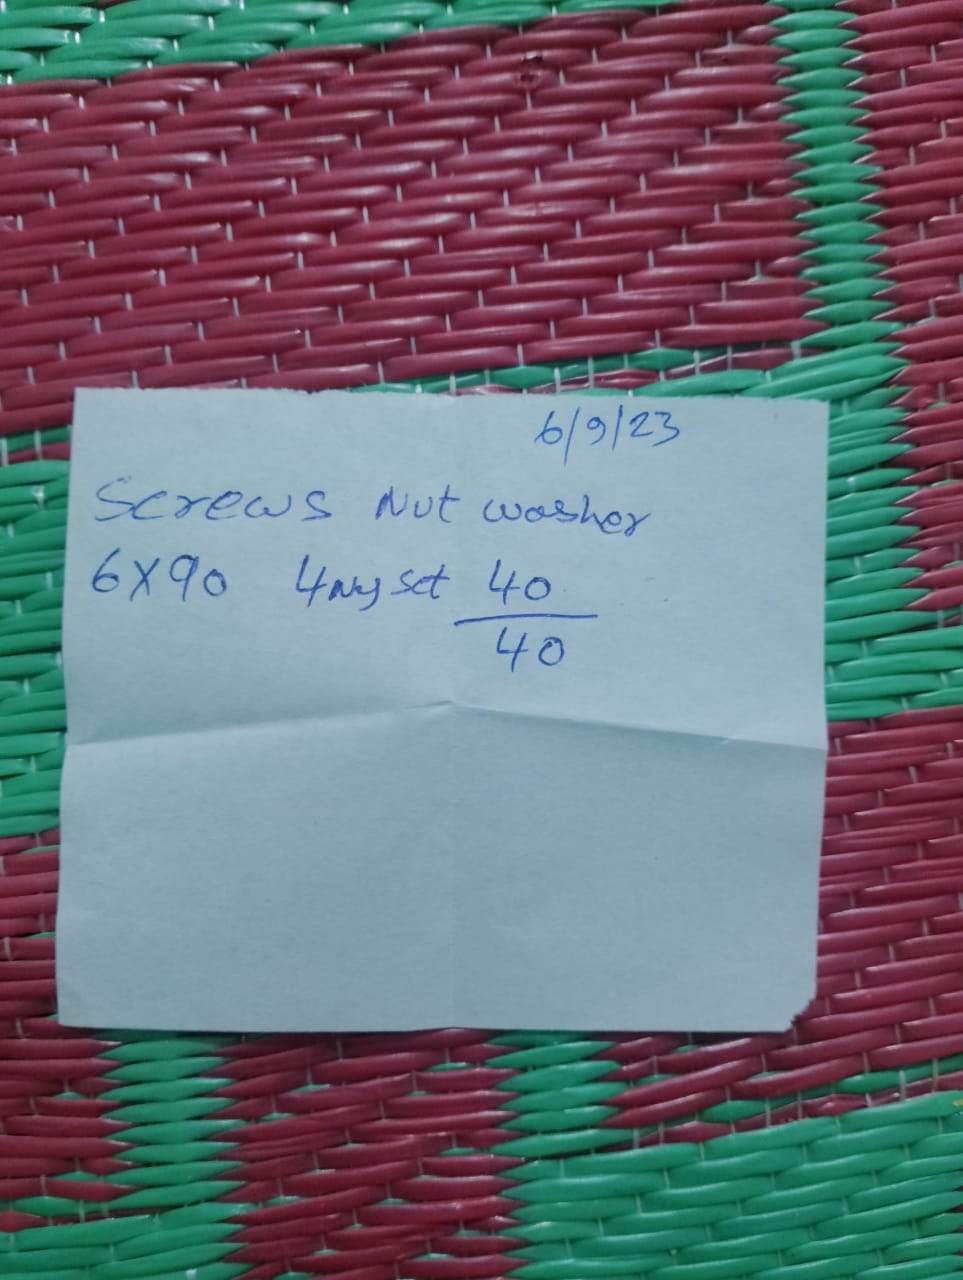 6/9/23
Screws Nut washer
6X90 4 set 40
40